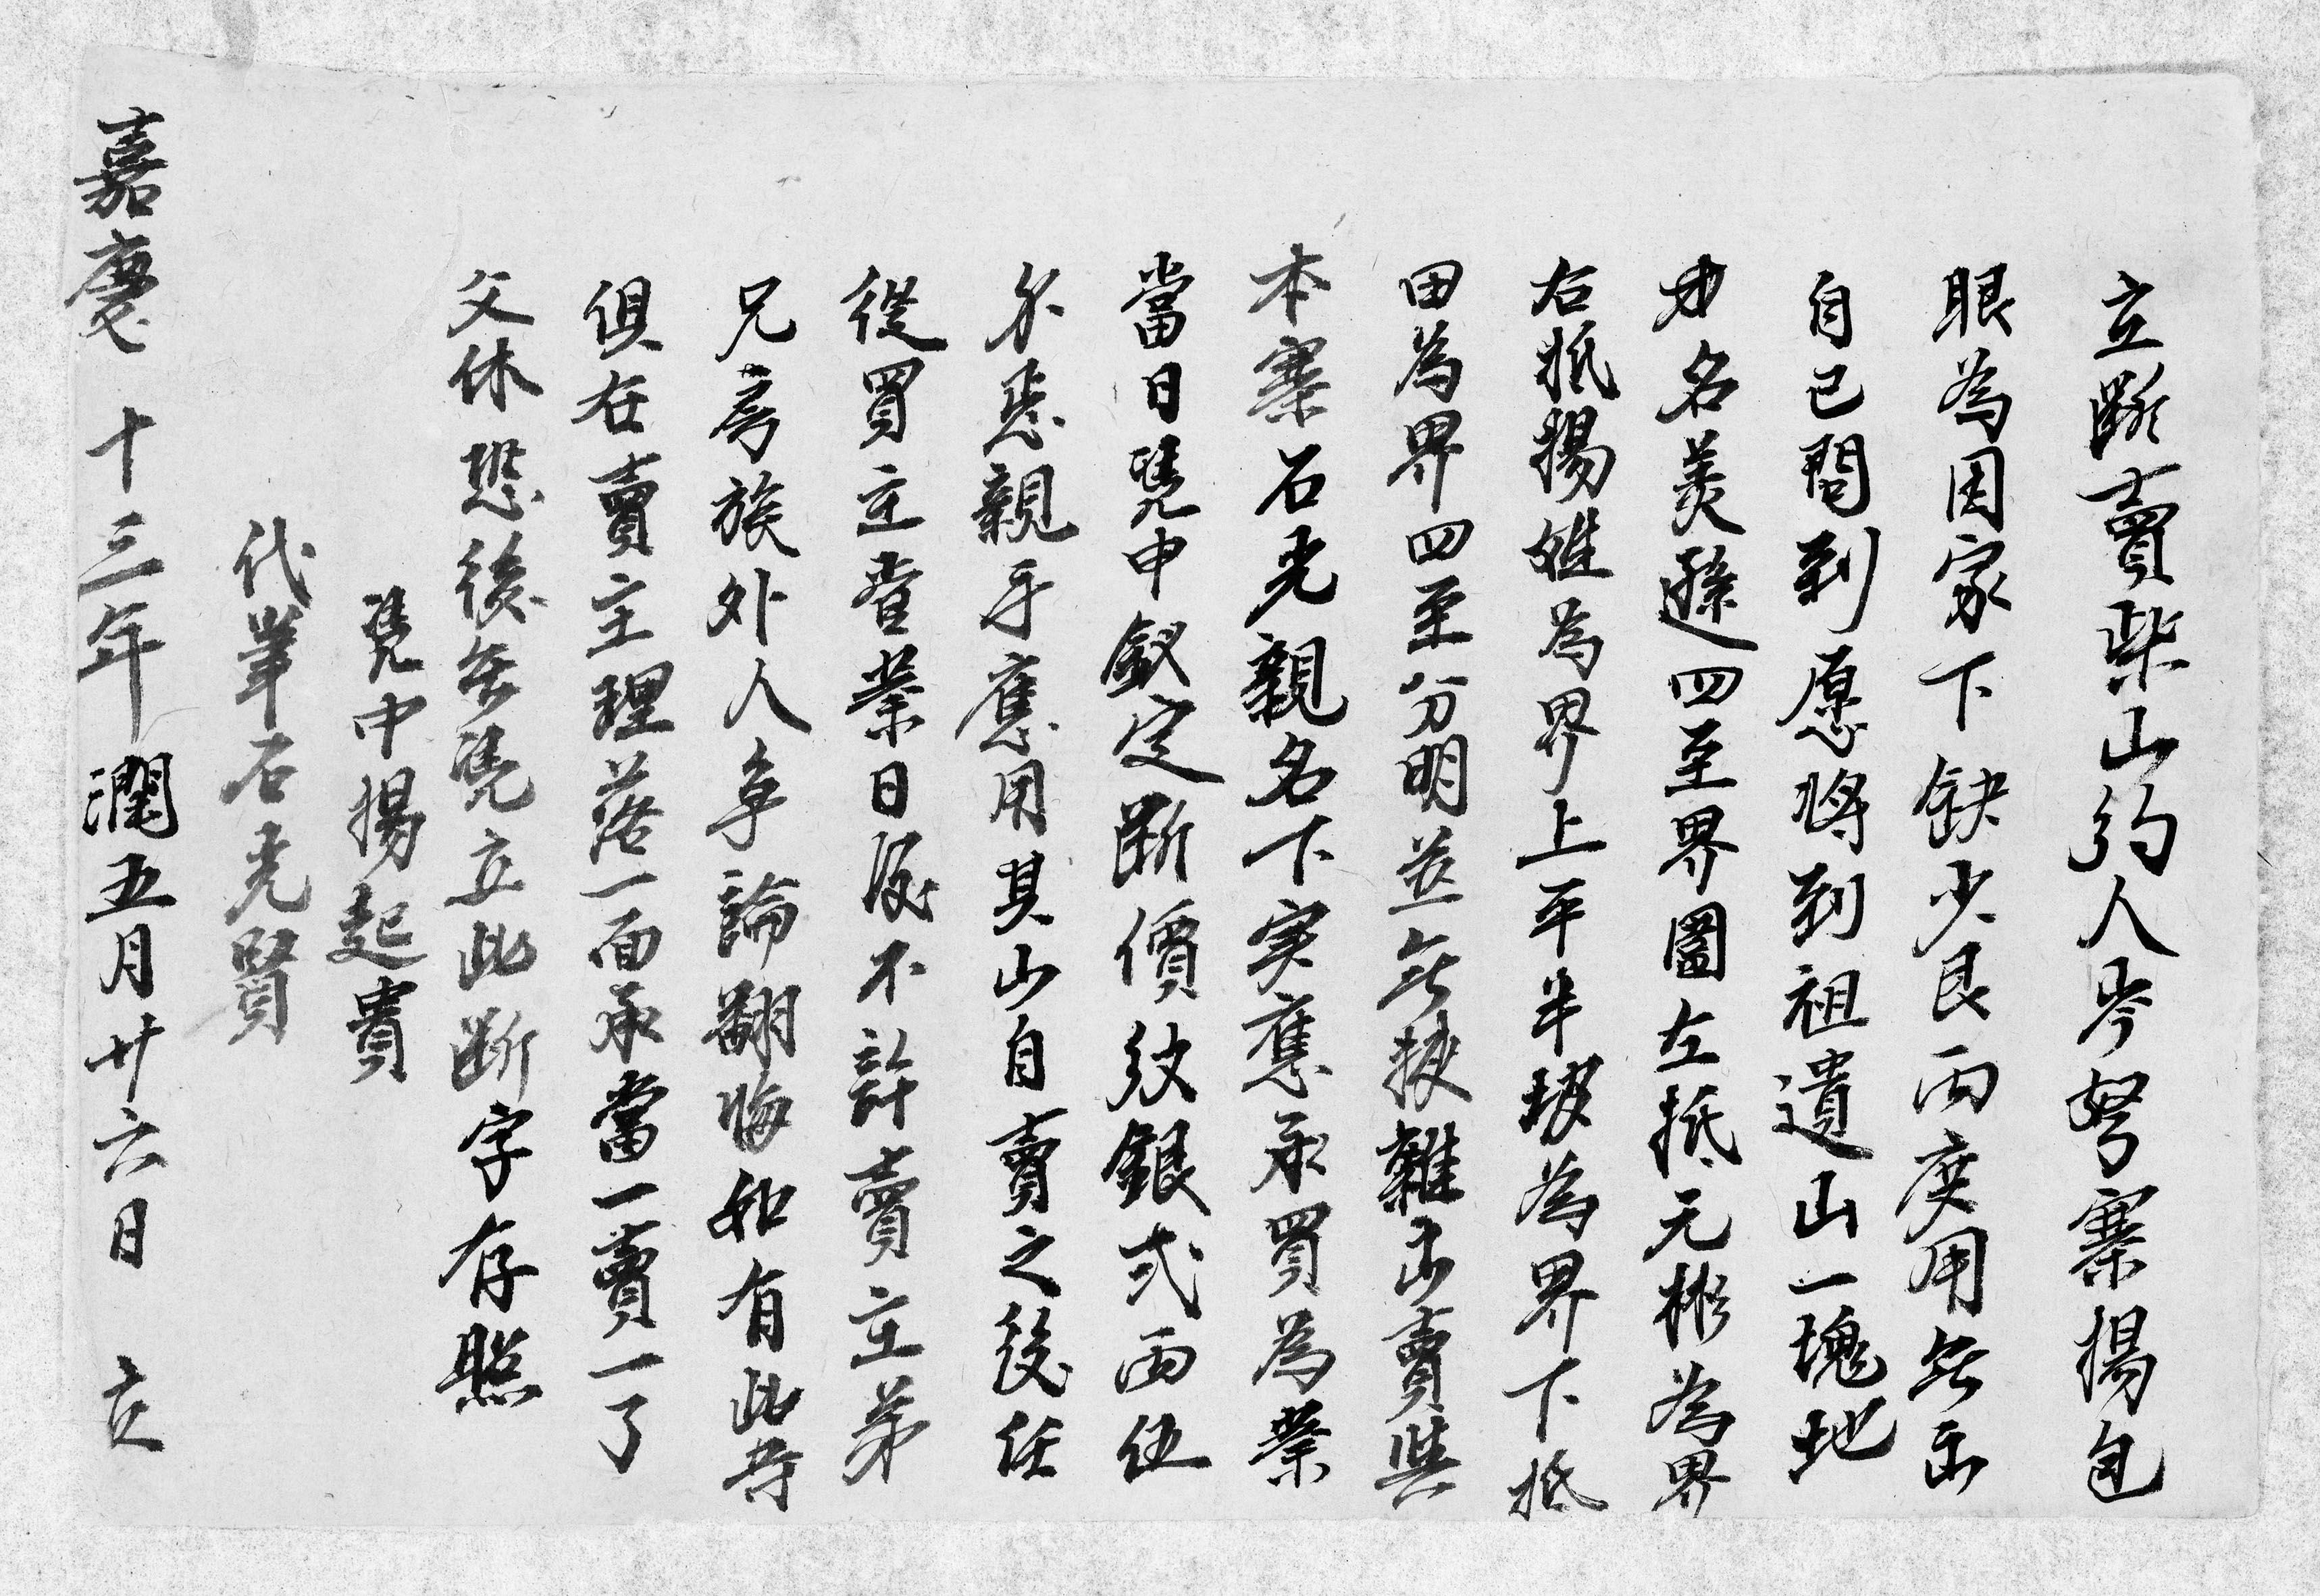 立断賣柴山约人岑努寨楊包
眼為因家下缺少艮両度用無出
自己問到愿將到祖遺山一塊地
才名美遜四至界圖左抵元彬為界
右抵楊姓為界上平半坡為界下抵
田為界四至分明並無挾雜出賣與
本寨石光親名下実應承買為業
當日凭中鈫定断價紋銀弍両伍
尔悳親手應用其山自賣之後任
從買主耆業日後不許賣主弟
兄房族外人争論翻悔如有此等
俱在賣主理落一面承當一賣一了
父休恐後無凭立此断字存照
凭中楊起貴
代筆石光賢
嘉慶十三年潤五月廿六日 立